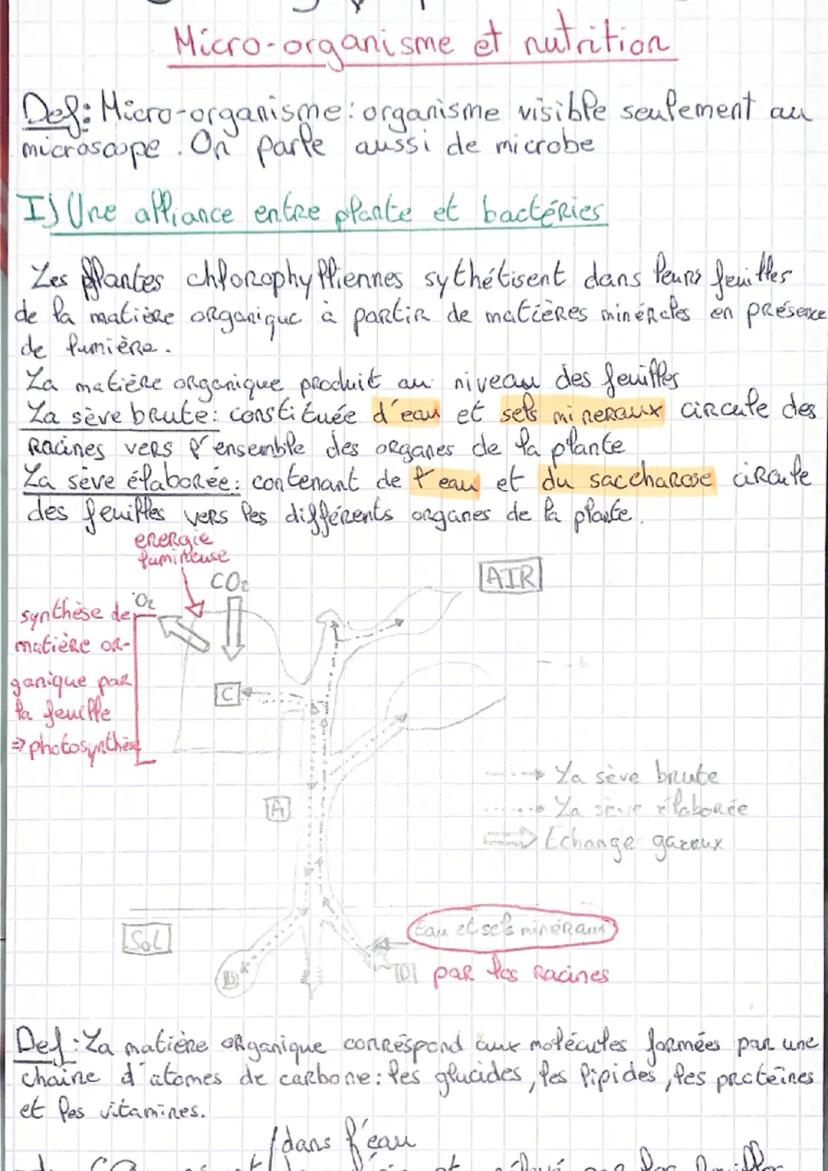 Micro-organisme et nutrition
Def: Micro-organisme: organisme visible seulement au
microscope. On parle aussi de microbe
I) Une alliance entre plante et bactéries
Les plantes chlorophylliennes sythétisent dans leurs feuilles
de la matière organique à partir de matières minérales en présence
de lumière.
La matière organique produit au niveau des feuilles
La sève brute: constituée d'eau et sels mineraux circule des
racines vers l'ensemble des organes de la plante
La sève élaborée: contenant de l'eau et du saccharose circule
des feuilles vers les différents organes de la plante.
energie
lumineuse
CO2
AIR
O2
synthèse de
matière or-
ganique par
la feuille
=> photosynthèse
C
La sève brute
A
La sève élaborée
Echange gazeux
Sol
Eau et sels minéraux
D
par les racines
Def: La matière organique correspond aux molécules formées par une
chaine d'atomes de carbone: les glucides, les lipides, les protéines
et les vitamines.
dans l'eau